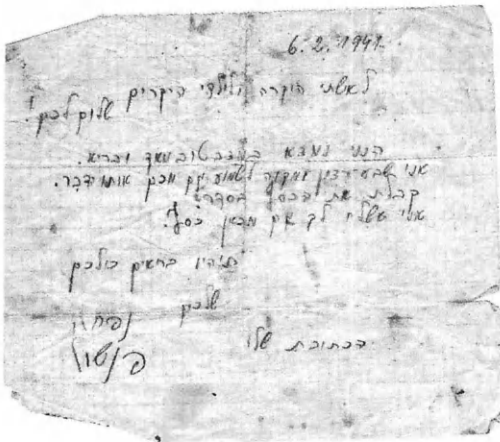 6.2.1941.
לאשתי היקרה ולילדי היקרים
שלום לכם!
הנני נמצא במצב טוב מאד ובריא.
אני שבע רצון ומקוה לשמוע גם מכם אותו דבר.
קבלתי את הכסף בסדר.
אני אשלח לך גם מכאן כסף.
תהיו בריאים כולכם
שלכם
הכתובת שלי